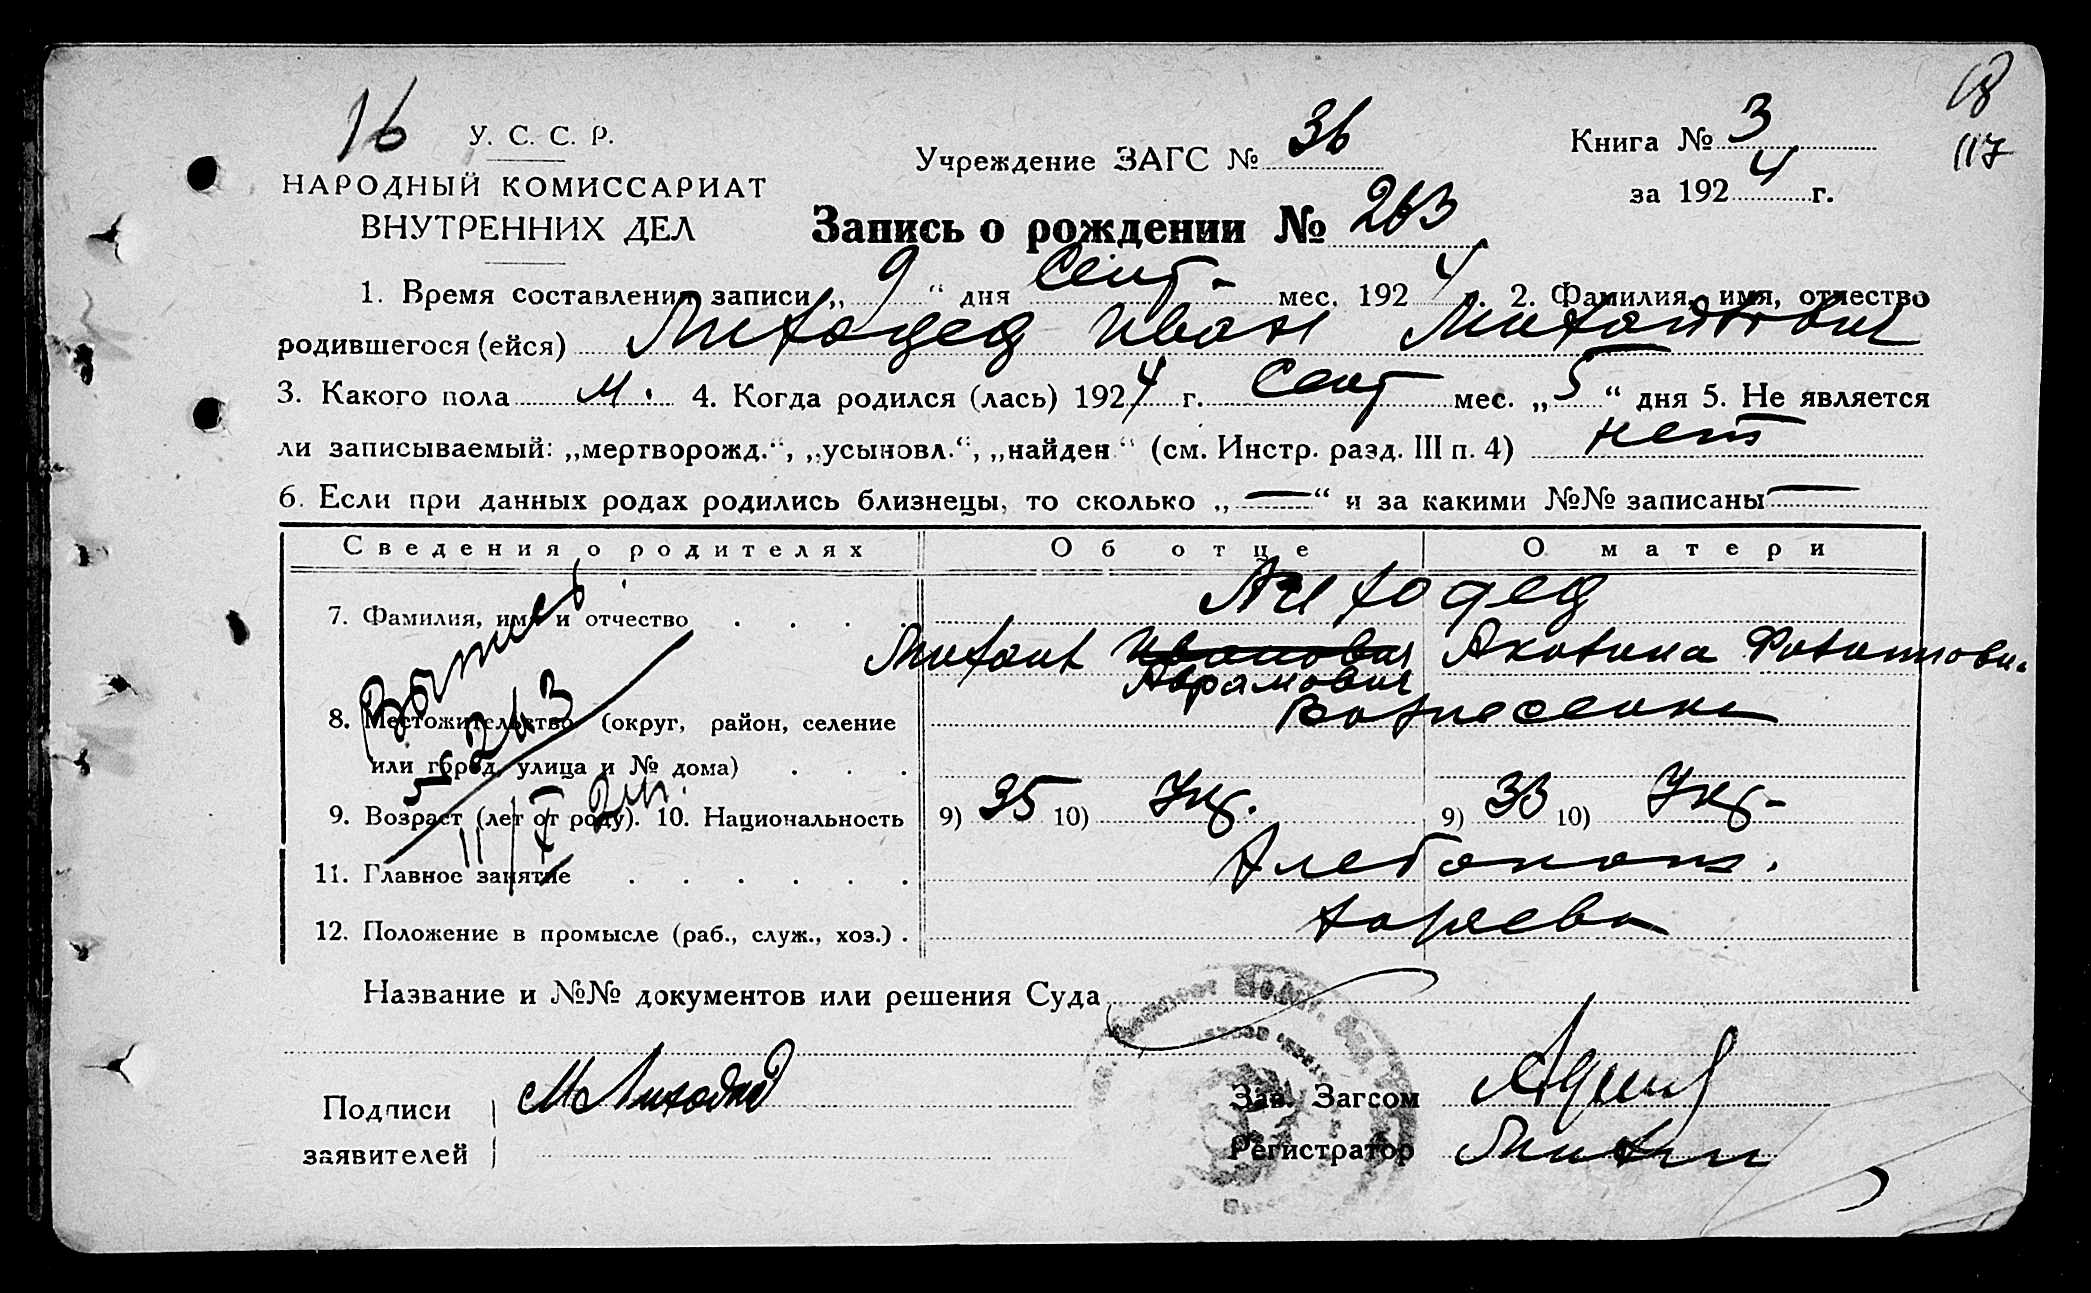 16
18
117
У. С. С. Р.
НАРОДНЫЙ КОМИССАРИАТ
ВНУТРЕННИХ ДЕЛ
Учреждение ЗАГС № 36
Книга № 3
за 1924 г.
Запись о рождении № 263
1. Время составления записи „ 9 “ дня Сент. мес. 1924. 2. Фамилия, имя, отчество
родившегося (ейся) Лиходед Иван Михайлович
3. Какого пола м. 4. Когда родился (лась) 1924 г. Сент мес. „ 5 “ дня 5. Не является
ли записываемый: „мертворожд.“, „усыновл.“, „найден“ (см. Инстр. разд. III п. 4) нет
6. Если при данных родах родились близнецы, то сколько „ — “ и за какими №№ записаны —
Сведения о родителях Об отце О матери
7. Фамилия, имя и отчество . . . . Лиходед
Михаил Иванович
Аврамович
8. Местожительство (округ, район, селение Вознесенка
или город, улица и № дома) . . .
9. Возраст (лет от роду). 10. Национальность 9) 35 10) Укр. 9) 33 10) Укр-
11. Главное занятие . . . . . . Хлебопаш.
12. Положение в промысле (раб., служ., хоз.) . хозяева
263
Название и №№ документов или решения Суда
Подписи
заявителей
М Лиходед
Зав. Загсом
Регистратор